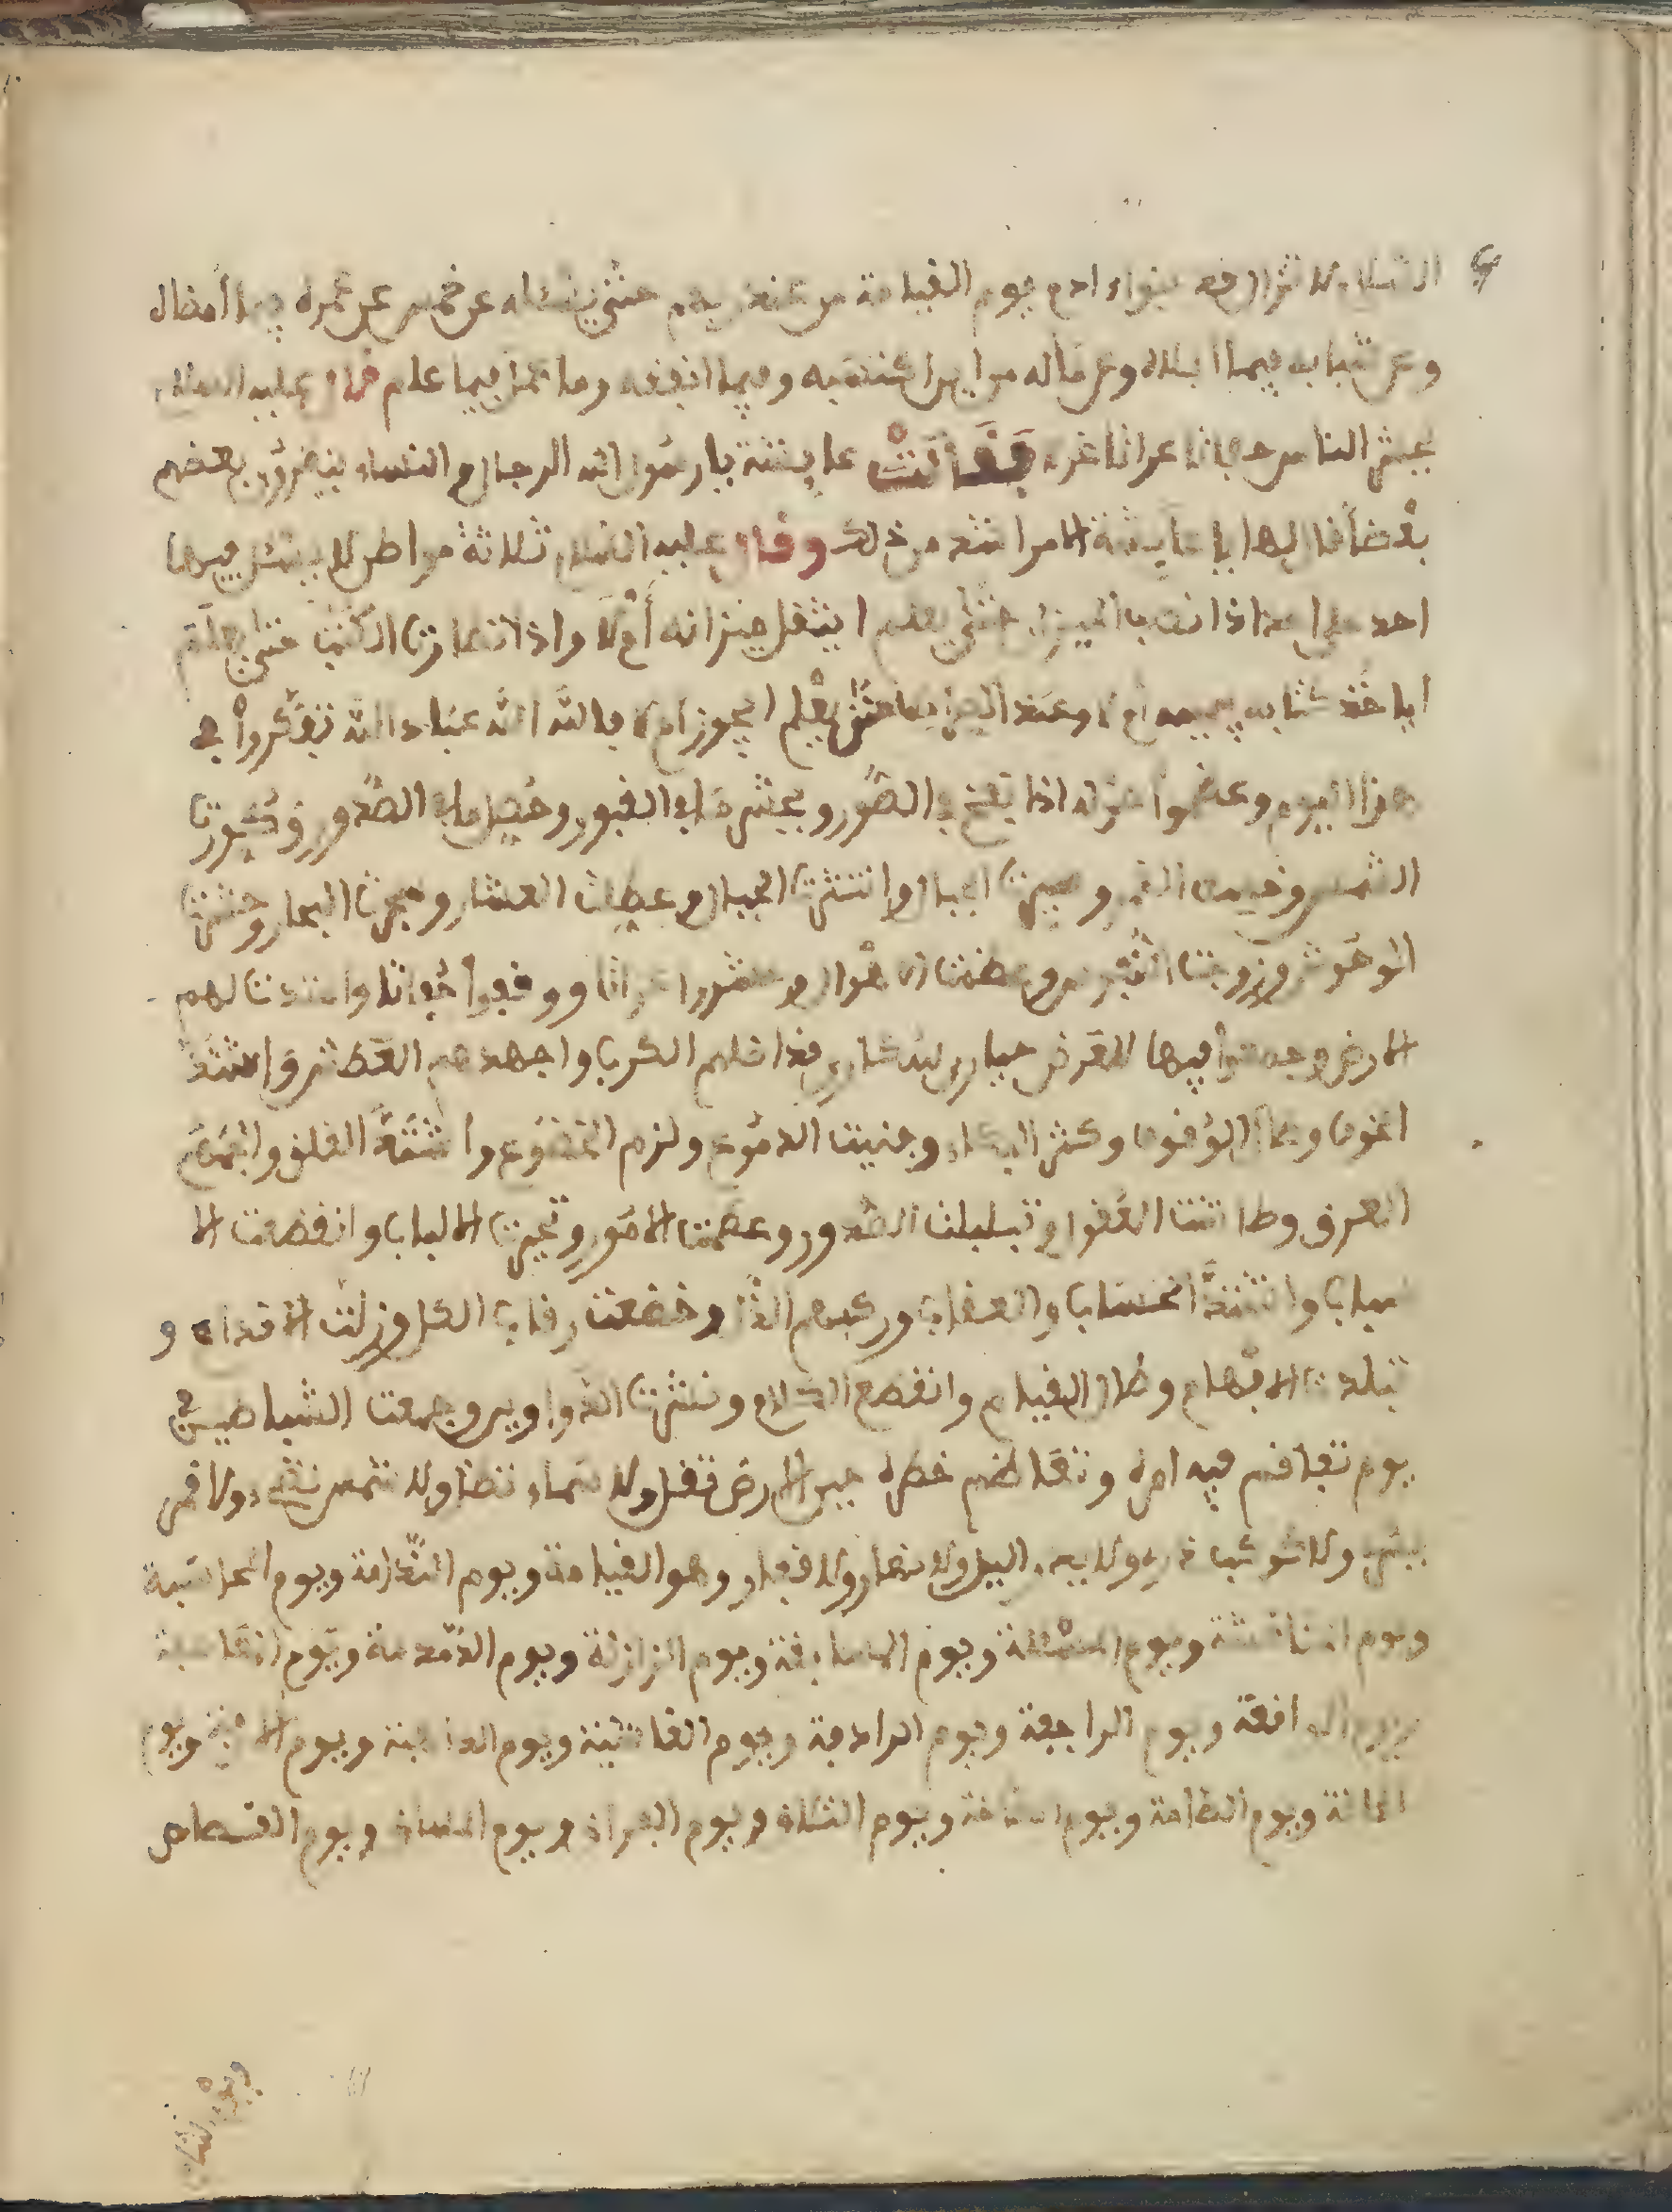 السلام لا تزال قدم بنوا ادم يوم القيامة من عند ربهم حتى يسئله عن خمس عن عمره فيما افضاله
وعن شبابه فيما ابلاه وعن ماله من اين اكتسبه وفيما انفقه وما عمل فيما علم وقال عليه السلام
يحشر الناس حفاتا عراتا غرلا فقالت عايشة يا رسول الله الرجال والنساء ينظرون بعضهم
بعضا قال لها يا عايشة الامر اشد من ذلك وقال عليه السلام ثلاثة مواطن لا يسئل فيها
احد على احد اذا نصب الميزان حتى يعلم ايثقل ميزانه أم لا واذا تطايرت الكتب حتى يعلم
اياخذ كتابه بيمينه ام لا وعند الصراط حتى يعلم ايجوز ام لا فالله الله عباد الله تفكروا في
هذا اليوم وعظموا هوله اذا نفخ في الصور وبعثر ما في القبور وحصل ما في الصدور وكورت
الشمس وخسف القمر وسيرت الجبال وانتثرت الجبال وعطلت العشار وسجرت البحار وحشرت
الوحوش وزوجت النفوس وعظمت الاهوال وحشروا عراتا ووقفوا حفاتا وامتدت لهم
الارض وجمعوا فيها للعرض حيارى سكارى قد اظلهم الكرب واجهدهم العطش واشتد
الخوف وطال الوقوف وكثر البكاء وفنيت الدموع ولزم الخضوع واشتد القلق والجمهم
العرق وطاشت العقول وتبلبلت الصدور وعظمت الامور وتحيرت الالباب وانقطعت الا
سباب واشتد الحساب والعقاب وركبهم الذل وخضعت رقاب الكل وزلت الاقدام و
تبلدت الافهام وطال القيام وانقطع الكلام ونشرت الدواوير وجمعت الشياطين في
يوم تفاقم فيه امره وتعاظم خطره حين لا ارض تقل ولا سماء تظل ولا شمس تضيء ولا قمر
يسري ولا كوكب دري ولا يه اليل ولا نهار ولا قفار وهو القيامة ويوم الندامة ويوم المحاسبة
ويوم المناقشة ويوم المسئلة ويوم المسابقة ويوم الزلزلة ويوم الدمدمة ويوم القاصبة
ويوم الواقعة ويوم الراجفة ويوم الرادفة ويوم الغاشية ويوم الداهية ويوم الازفة ويوم
الحاقة ويوم الطامة ويوم الصاخة ويوم التلاق ويوم الفراق ويوم المساق ويوم القصاص